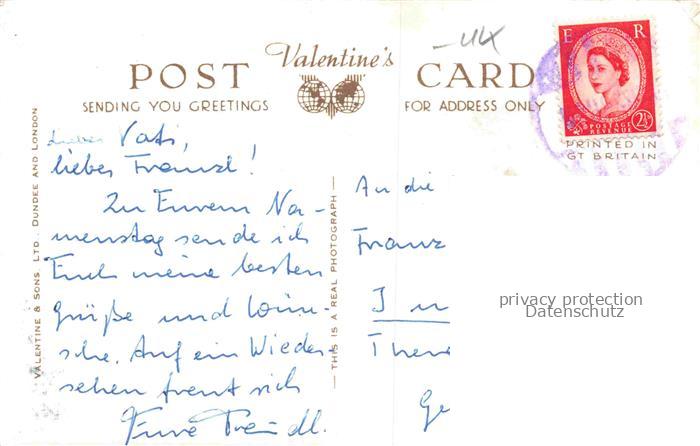 Valentine's
POST CARD
SENDING YOU GREETINGS
FOR ADDRESS ONLY
E R
POSTAGE
REVENUE
2½
PRINTED IN
GT BRITAIN
VALENTINE & SONS, LTD., DUNDEE AND LONDON
THIS IS A REAL PHOTOGRAPH
Lieber Vati,
lieber Franzl!
Zu Eurem Na-
menstag sende ich
Euch meine besten
Grüße und Wün-
sche. Auf ein Wieder-
sehen freut sich
Eure
An die
Franz
I
Ther
Ge
privacy protection
Datenschutz